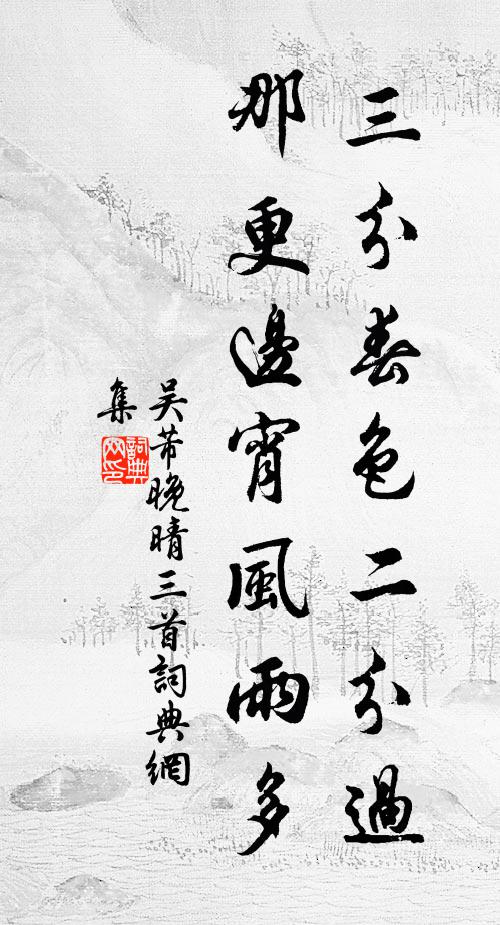 三分春色二分過
那更邊宵風雨多
吴芾晚晴三首詞典網
集
詞典網印